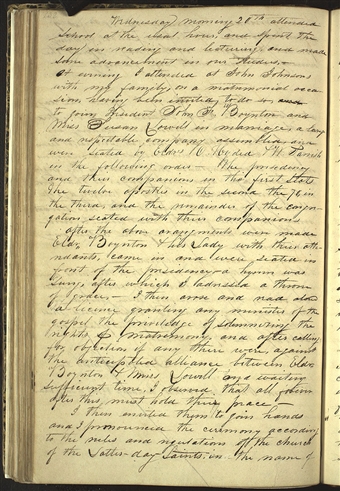 Wednesday morning 20th attended
School at the usual hour, and spent the
day in reading and lecturing, and made
some advancement in our studies,—
At evening I attended at John Johnsons
with my family, on a matrimonial occa
sion, having been invited to do so
to join President John F. Boynton and
Miss Susan Lowell in marriage, a large
and respectable company assembled and
were seated by Eldr's O. Hyde & W. Parrish
in the following order— The presidency
and their companions in the first seats
the twelve apostles in the second the 70 in
the third, and the remainder of the congre-
gation seated with their companions
after the above arrangements were made
Eldr. Boynton & his Lady with their atte-
ndants, came in and were seated in
front of the presidency— a hymn was
sung, after which I addressed a throne
of grace,— I then arose and read aloud
a license granting any minister of the
gospel the priviledge of solemnizing the
rights of matrimony, and after calling
for objection if any there were, against
the anticipated alliance between Eldr.
Boynton & Miss Lowell and waiting
sufficient time, I observed that all forever
after this must hold their peace—
I then envited them to join hands
and I pronounced the ceremony according
to the rules and regulations of the church
of the Latter-day-Saints, in the name of